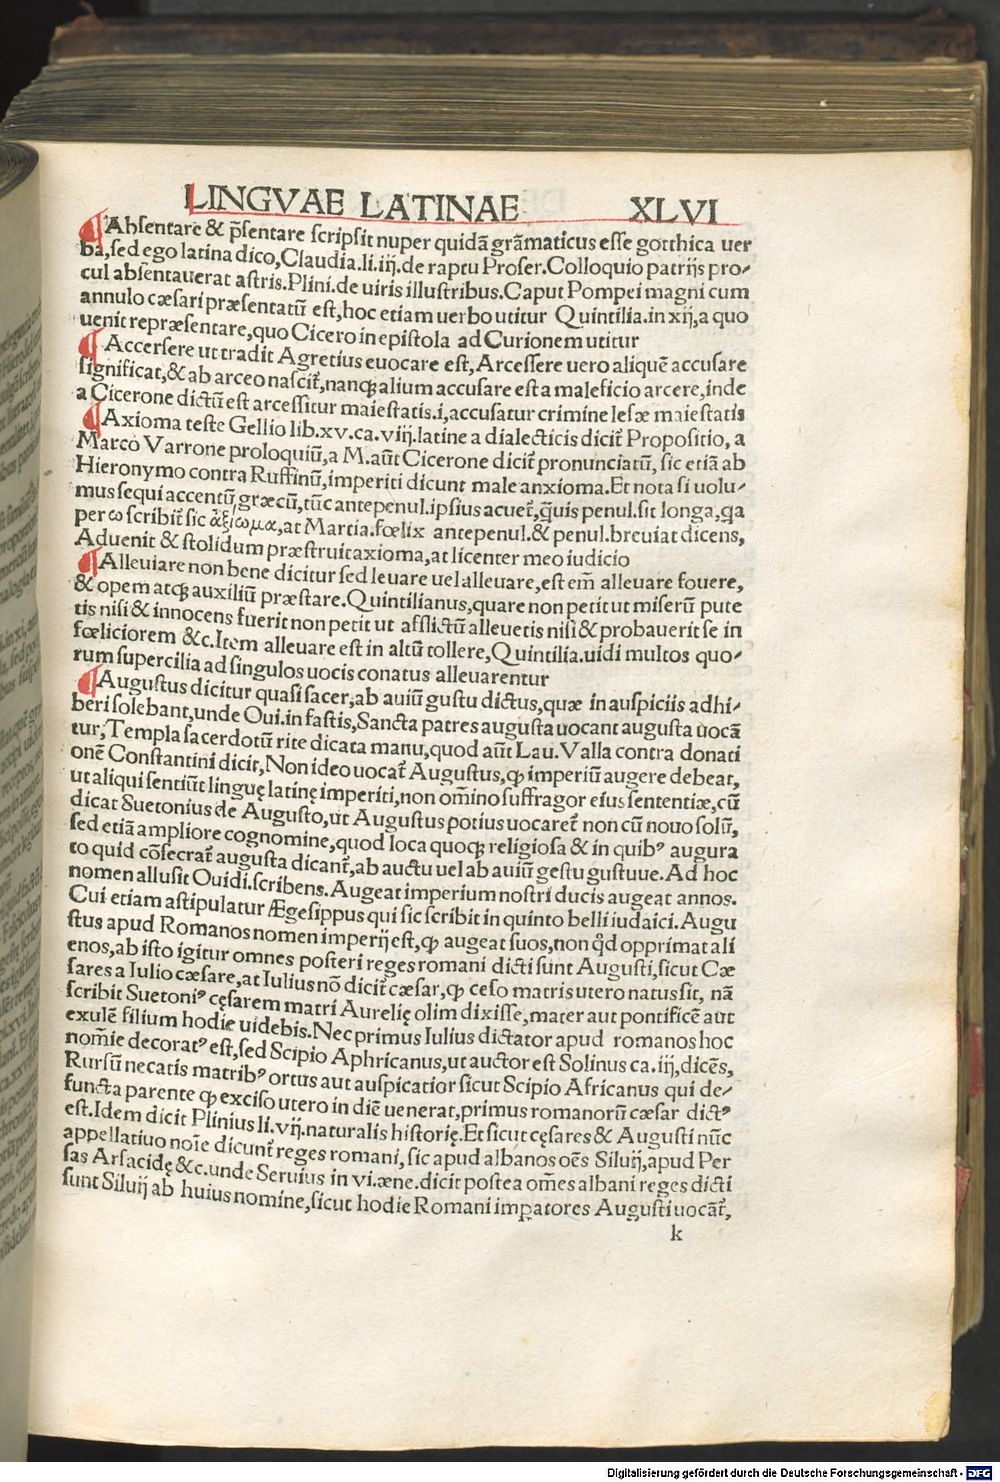 LINGVAE LATINAE XLVI
¶Absentare & p̄sentare scripsit nuper quidā grāmaticus esse gotthica uer
ba, sed ego latina dico, Claudia.li.iij.de raptu Proser.Colloquio patrijs pro⸗
cul absentauerat astris.Plini.de uiris illustribus.Caput Pompei magni cum
annulo cæsari præsentatū est, hoc etiam uerbo utitur Quintilia.in xij, a quo
uenit repræsentare, quo Cicero in epistola ad Curionem utitur
¶Accersere ut tradit Agretius euocare est, Arcessere uero aliquē accusare
significat, & ab arceo nascit᷑, nanqꝫ alium accusare est a maleficio arcere, inde
a Cicerone dictū est arcessitur maiestatis.i, accusatur crimine lesæ maiestatis
¶Axioma teste Gellio lib.xv.ca.viij.latine a dialecticis dicit᷑ Propositio, a
Marco Varrone proloquiū, a M.aūt Cicerone dicit᷑ pronunciatū, sic etiā ab
Hieronymo contra Ruffinū, imperiti dicunt male anxioma.Et nota si uolu⸗
mus sequi accentū græcū, tūc antepenul.ipsius acuet᷑, q̄uis penul.sit longa, qa
per ω scribit᷑ sic ἀξίωμα, at Martia.fœlix antepenul.& penul.breuiat dicens,
Aduenit & stolidum præstruit axioma, at licenter meo iudicio
¶Alleuiare non bene dicitur sed leuare uel alleuare, est em̄ alleuare fouere,
& opem atqꝫ auxiliū præstare.Quintilianus, quare non petit ut miserū pute
tis nisi & innocens fuerit non petit ut afflictū alleuetis nisi & probauerit se in
fœliciorem &c.Item alleuare est in altū tollere, Quintilia.uidi multos quo⸗
rum supercilia ad singulos uocis conatus alleuarentur
¶Augustus dicitur quasi sacer, ab auiū gustu dictus, quæ in auspiciis adhi⸗
beri solebant, unde Oui.in fastis, Sancta patres augusta uocant augusta uocā
tur, Templa sacerdotū rite dicata manu, quod aūt Lau.Valla contra donati
onē Constantini dicit, Non ideo uocat᷑ Augustus, ꝙ imperiū augere debeat,
ut aliqui sentiūt linguę latinę imperiti, non om̄ino suffragor eius sententiæ, cū
dicat Suetonius de Augusto, ut Augustus potius uocaret᷑ non cū nouo solū,
sed etiā ampliore cognomine, quod loca quoqꝫ religiosa & in quibꝰ augura
to quid cōsecrat᷑ augusta dicant᷑, ab auctu uel ab auiū gestu gustuue.Ad hoc
nomen allusit Ouidi.scribens.Augeat imperium nostri ducis augeat annos.
Cui etiam astipulatur Ægesippus qui sic scribit in quinto belli iudaici.Augu
stus apud Romanos nomen imperij est, ꝙ augeat suos, non qd̄ opprimat ali
enos, ab isto igitur omnes posteri reges romani dicti sunt Augusti, sicut Cæ
sares a Iulio cæsare, at Iulius nō dicit᷑ cæsar, ꝙ ceso matris utero natus sit, nā
scribit Suetoniꝰ cęsarem matri Aurelię olim dixisse, mater aut pontificē aut
exulē filium hodie uidebis.Nec primus Iulius dictator apud romanos hoc
nom̄ie decoratꝰ est, sed Scipio Aphricanus, ut auctor est Solinus ca.iij, dicēs,
Rursū necatis matribꝰ ortus aut auspicatior sicut Scipio Africanus qui de⸗
functa parente ꝙ exciso utero in diē uenerat, primus romanorū cæsar dictꝰ
est.Idem dicit Plinius li.vij.naturalis historię.Et sicut cęsares & Augusti nūc
appellatiuo noīe dicunt᷑ reges romani, sic apud albanos oēs Siluij, apud Per
sas Arsacidę &c.unde Seruius in vi.æne.dicit postea om̄es albani reges dicti
sunt Siluij ab huius nomine, sicut hodie Romani imꝑatores Augusti uocāt᷑,
k
Digitalisierung gefördert durch die Deutsche Forschungsgemeinschaft - DFG